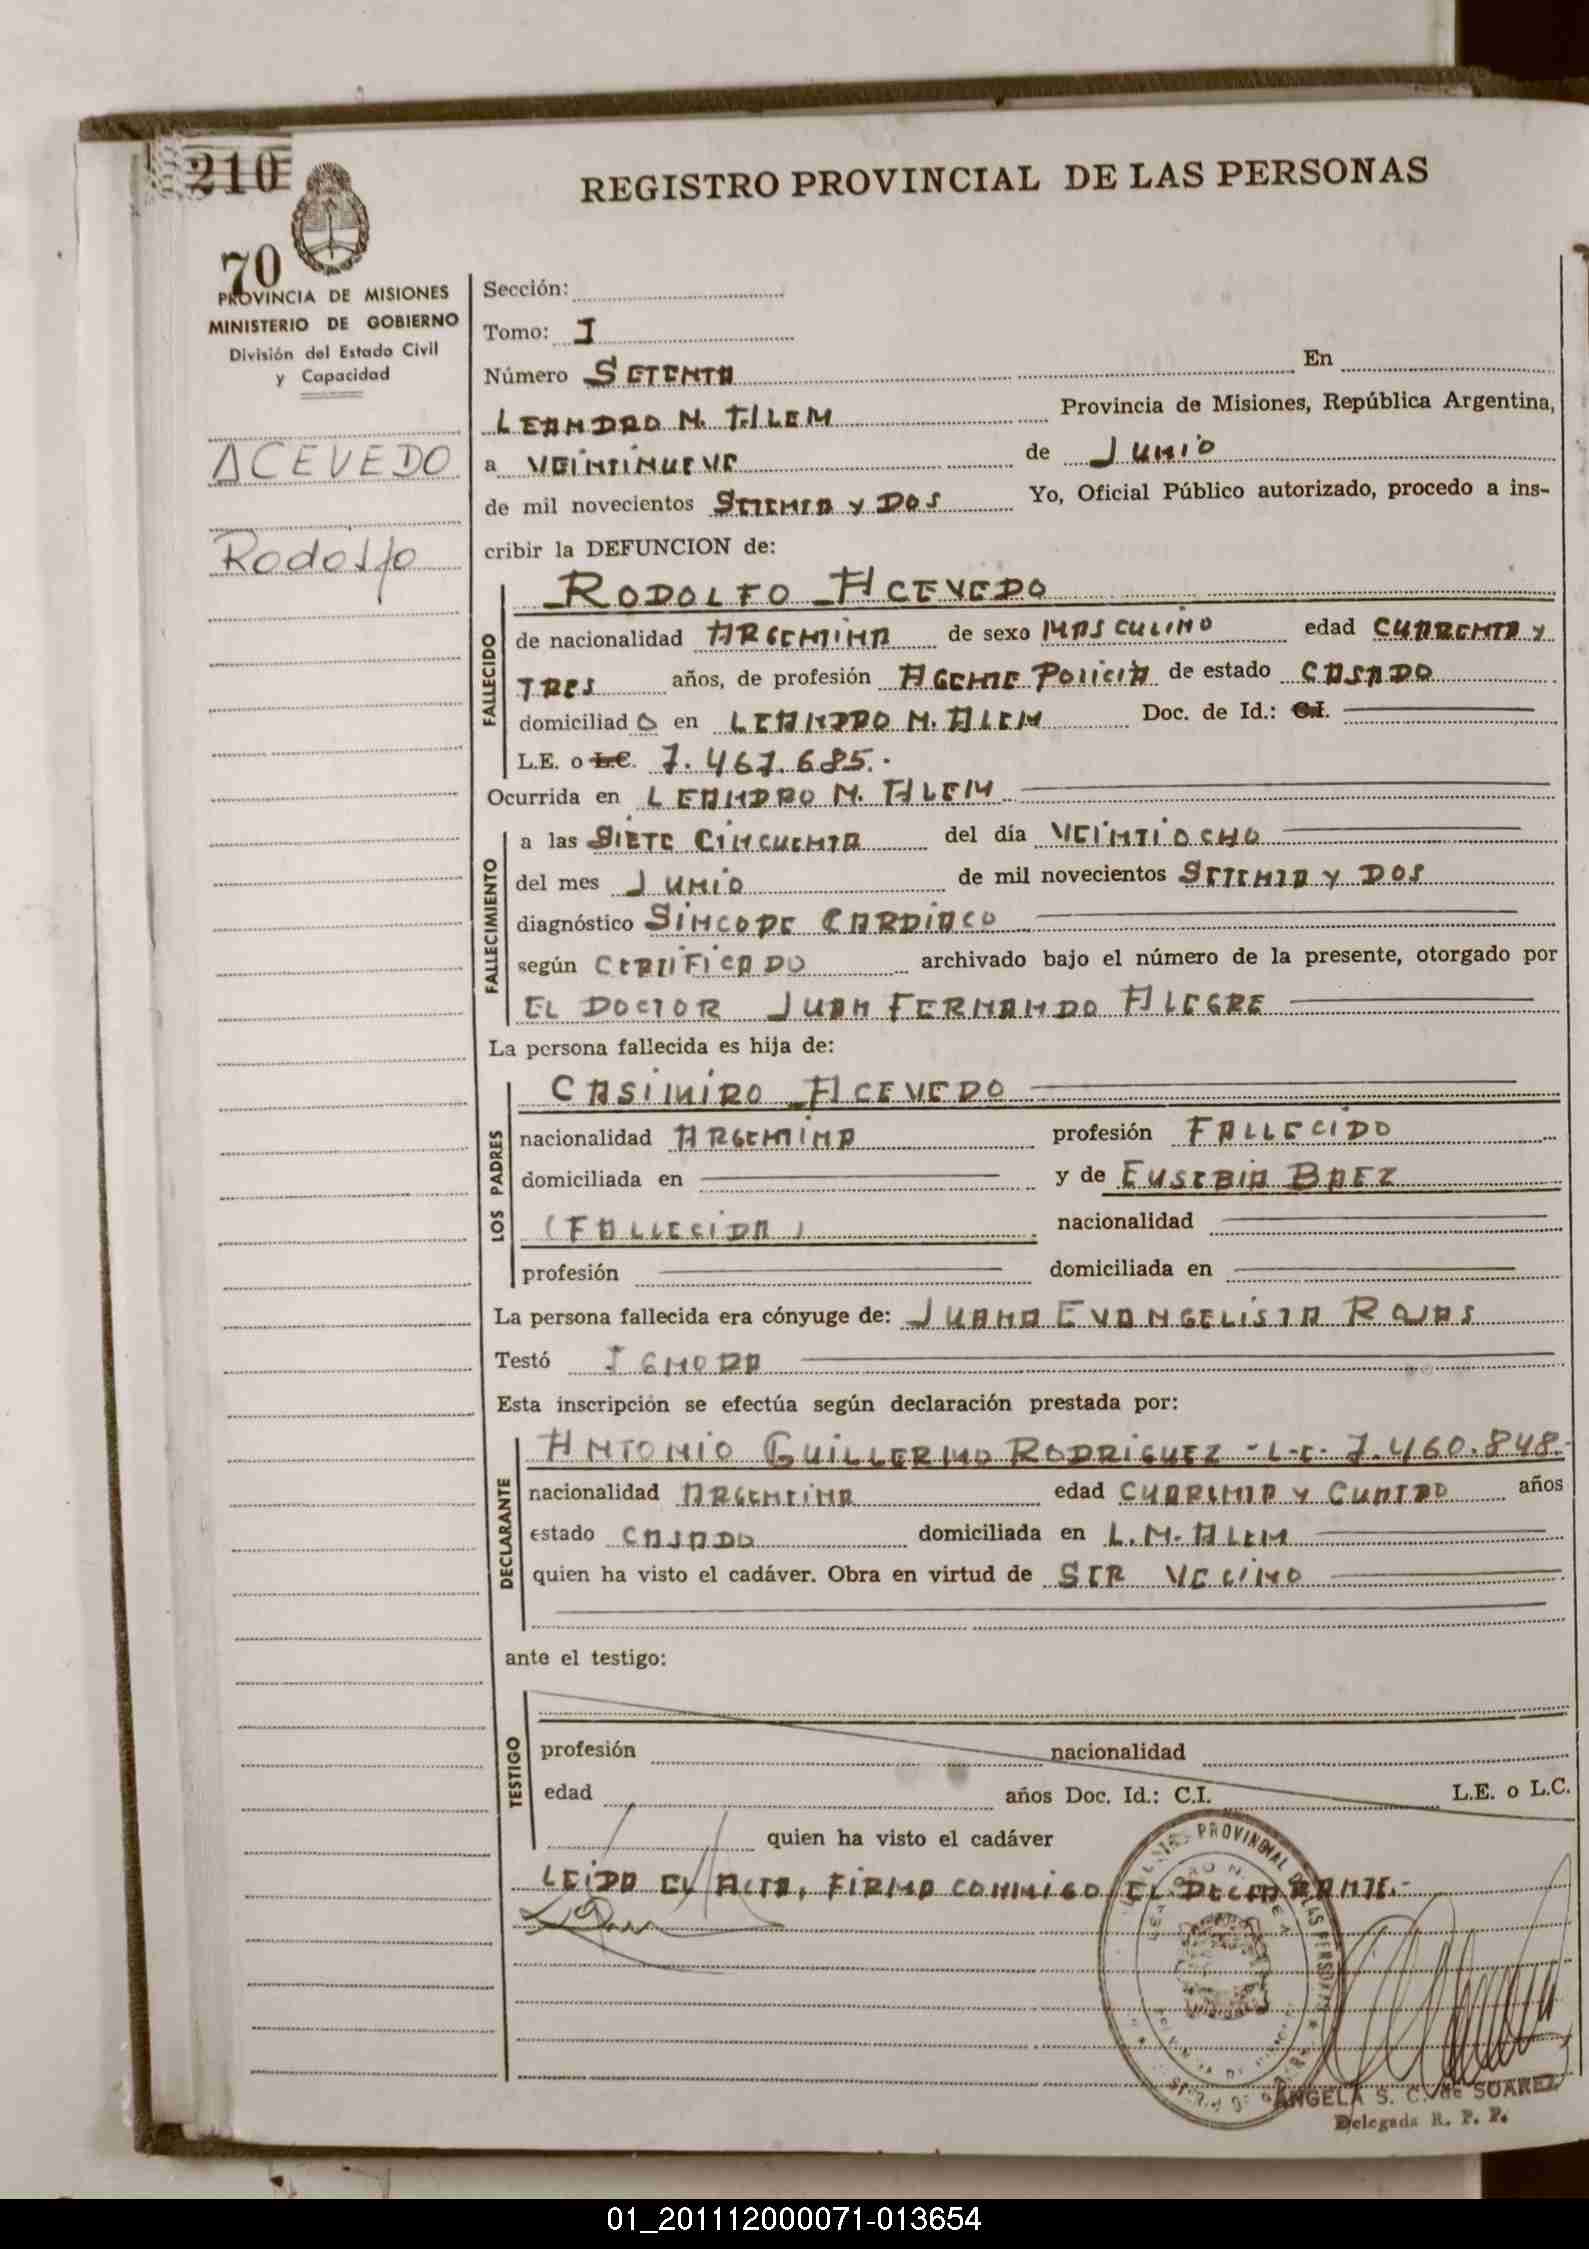 210
REGISTRO PROVINCIAL DE LAS PERSONAS
70
PROVINCIA DE MISIONES
MINISTERIO DE GOBIERNO
División del Estado Civil
y Capacidad
ACEVEDO
Rodolfo
Sección:
Tomo: I
Número SETENTA En
LEANDRO N. ALEM Provincia de Misiones, República Argentina,
a VEINTINUEVE de JUNIO
de mil novecientos SETENTA Y DOS Yo, Oficial Público autorizado, procedo a ins-
cribir la DEFUNCION de:
FALLECIDO
RODOLFO ACEVEDO
de nacionalidad ARGENTINA de sexo MASCULINO edad CUARENTA Y
TRES años, de profesión AGENTE POLICIA de estado CASADO
domiciliado en LEANDRO N. ALEM Doc. de Id.: C.I.
L.E. o L.C. 7.467.685.-
Ocurrida en LEANDRO N. ALEM
FALLECIMIENTO
a las SIETE CINCUENTA del día VEINTIOCHO
del mes JUNIO de mil novecientos SETENTA Y DOS
diagnóstico SINCOPE CARDIACO
según CERTIFICADO archivado bajo el número de la presente, otorgado por
EL DOCTOR JUAN FERNANDO ALEGRE
La persona fallecida es hija de:
LOS PADRES
CASIMIRO ACEVEDO
nacionalidad ARGENTINA profesión FALLECIDO
domiciliada en y de EUSEBIA BAEZ
(FALLECIDA) nacionalidad
profesión domiciliada en
La persona fallecida era cónyuge de: JUANA EVANGELISTA ROJAS
Testó IGNORA
Esta inscripción se efectúa según declaración prestada por:
DECLARANTE
ANTONIO GUILLERMO RODRIGUEZ - L.E. 7.460.848.-
nacionalidad ARGENTINA edad CUARENTA Y CUATRO años
estado CASADO domiciliada en L.N. ALEM
quien ha visto el cadáver. Obra en virtud de SER VECINO
ante el testigo:
TESTIGO
profesión nacionalidad
edad años Doc. Id.: C.I. L.E. o L.C.
quien ha visto el cadáver
LEIDA EL ACTA, FIRMA CONMIGO EL DECLARANTE.-
PROVINCIAL DE LAS PERSONAS
ANGELA S. C. de SUAREZ
Delegada R. P. P.
01_201112000071-013654